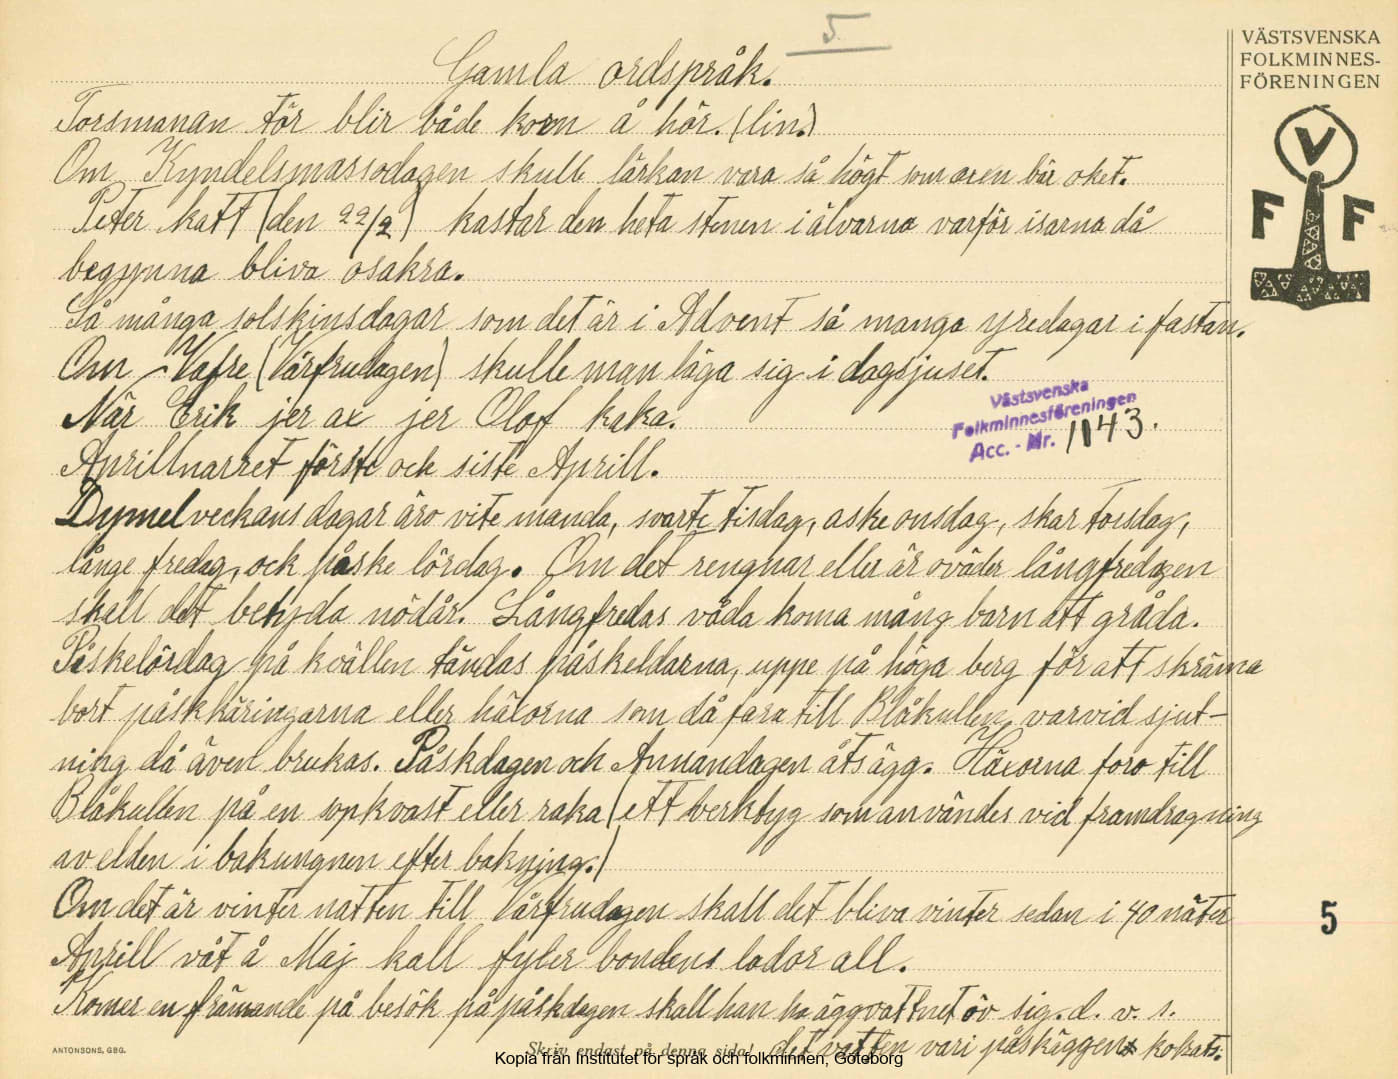 5
VÄSTSVENSKA
FOLKMINNES-
FÖRENINGEN
V
F F
Gamla ordspråk.
Torsmanan tör blir både korn å hör. (lin.)
Om Kyndelsmassodagen skulle lärkan vara så högt som oxen bär oket.
Peter katt (den 22/2) kastar den heta stenen i älvarna varför isarna då
begynna bliva osakra.
Så många solskinsdagar som det är i Advent så manga yredagar i fastan.
Om Vafre (Vårfrudagen) skulle man läga sig i dagsjuset.
När Erik jer ax jer Olof kaka.
Aprillnarret förste ock siste Aprill.
Dymelveckans dagar äro vite manda, svarte tisdag, aske onsdag, skar torsdag,
långe fredag, ock påske lördag. Om det rengnar eller är oväder långfredagen
skall det betyda nödår. Långfredas våda koma mång barn att gråda.
Påskelördag på kvällen tändas påskeldarna, uppe på höga berg för att skräma
bort påskkäringarna eller häxorna som då fara till Blåkullen, varvid sjut-
ning då även brukas. Påskdagen och Annandagen åts ägg. Häxorna foro till
Blåkullen på en sopkvast eller raka (ett verktyg som användes vid framdragning
av elden i bakungnen efter bakning.)
Om det är vinter natten till Vårfrudagen skall det bliva vinter sedan i 40 näter
Aprill våt å Maj kall fyler bondens lador all.
Komer en främande på besök på påskdagen skall han ha äggvattnet öv sig. d. v. s.
det vatten vari påskäggen kokats.
Västsvenska
Folkminnesföreningen
Acc. - Nr. 1143.
5
ANTONSONS, GBG.
Skriv endast på denna sida!
Kopia från Institutet för språk och folkminnen, Göteborg